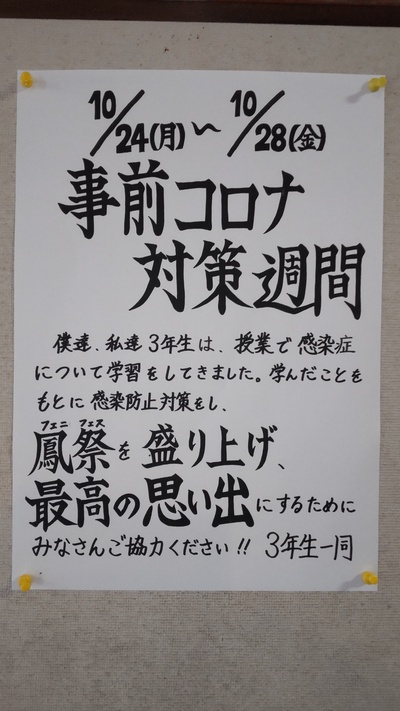 10/24(月)〜10/28(金)
事前コロナ
対策週間
僕達、私達3年生は、授業で感染症
について学習をしてきました。学んだことを
もとに感染防止対策をし、
フェニ フェス
鳳祭を盛り上げ、
最高の思い出にするために
みなさんご協力ください!! 3年生一同